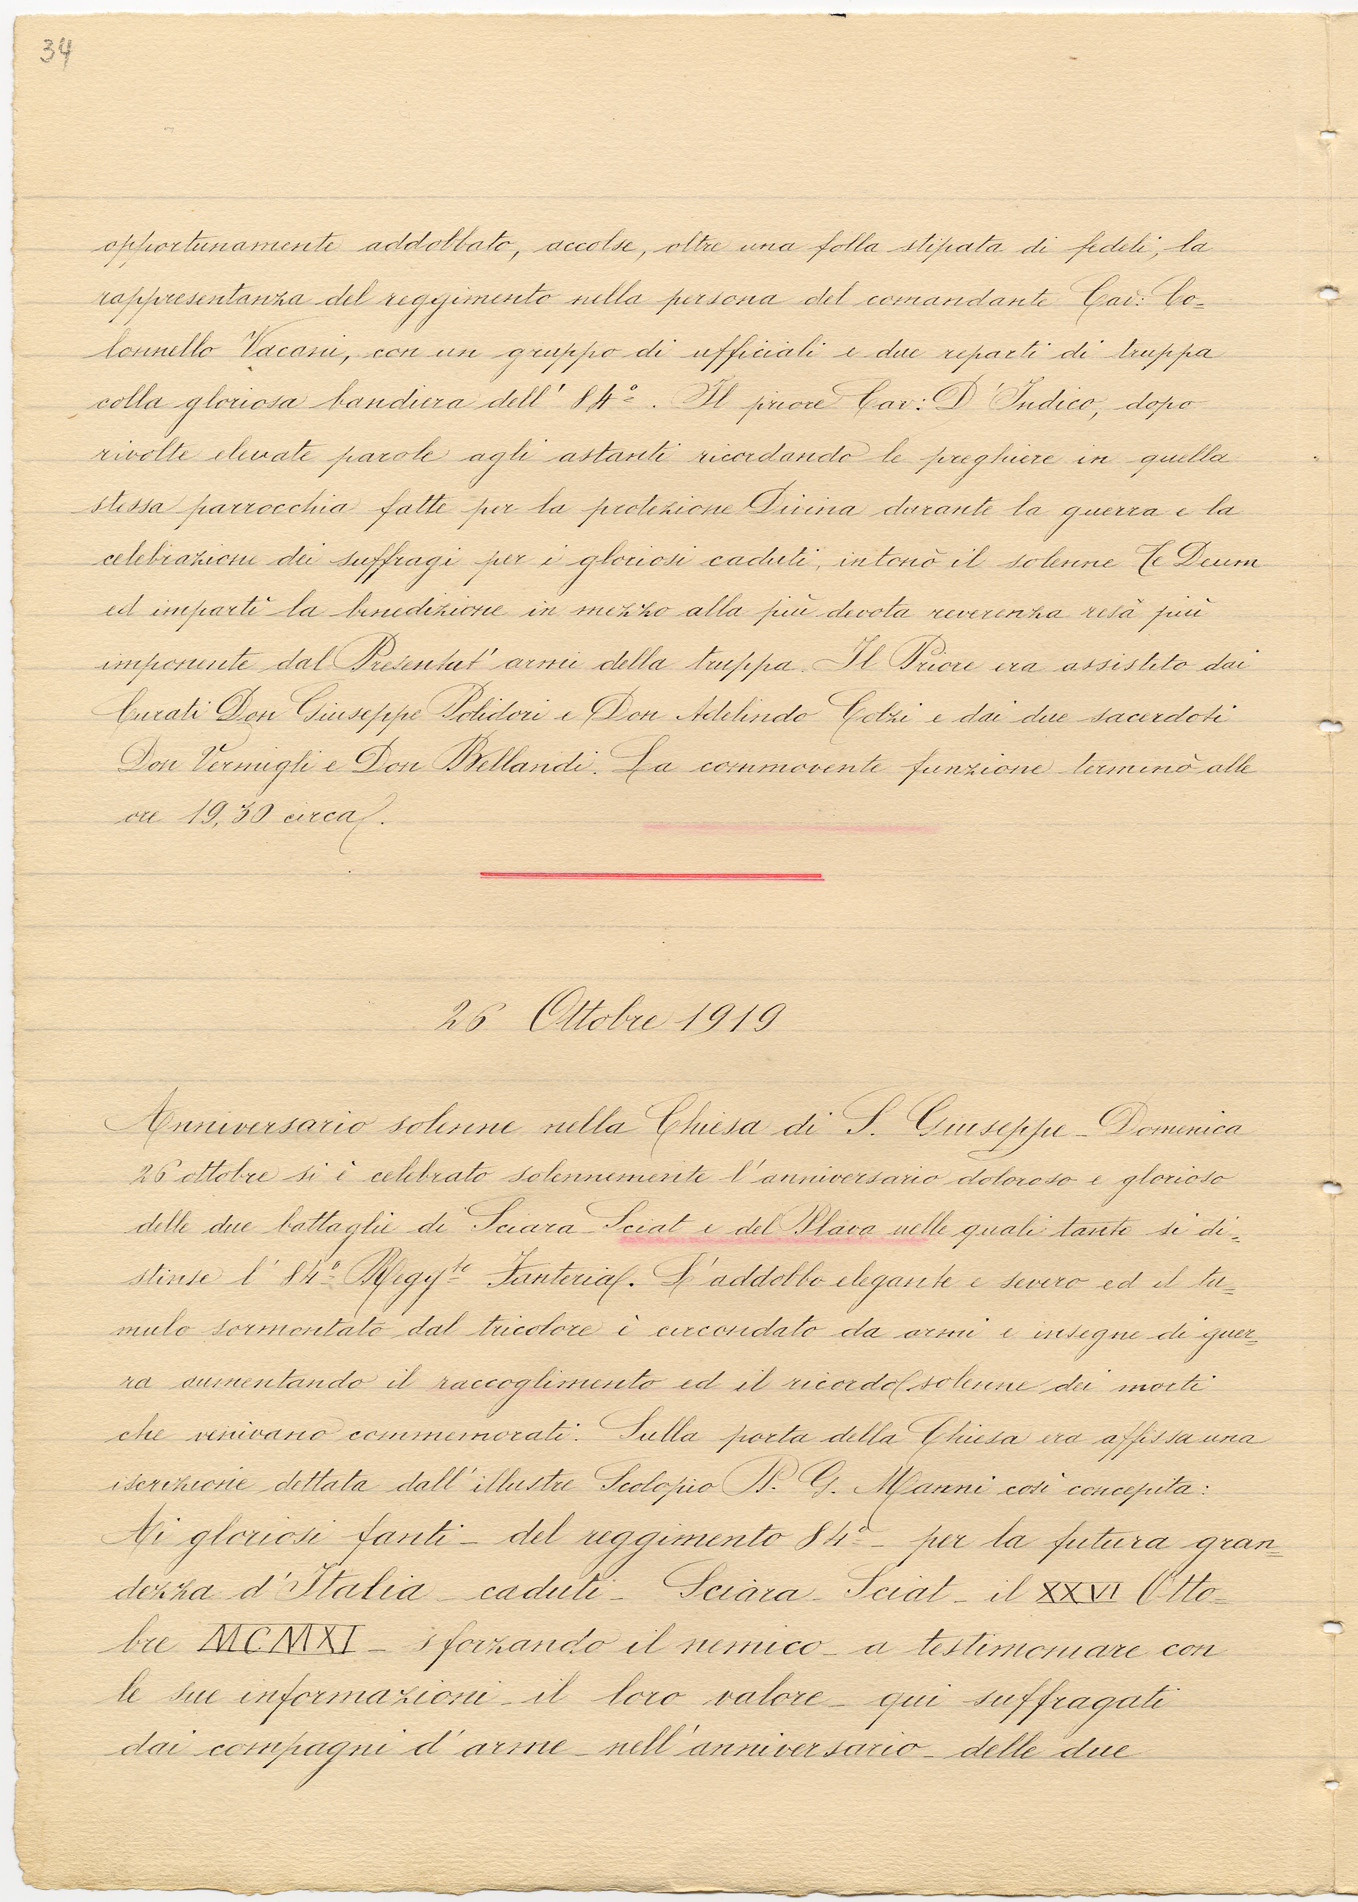 34
opportunamente addobbato, accolse, oltre una folla stipata di fedeli, la
rappresentanza del reggimento nella persona del comandante Cav: Co=
lonnello Vacani, con un gruppo di ufficiali e due reparti di truppa
colla gloriosa bandiera dell' 84°. Il priore Cav: D'Indico, dopo
rivolte elevate parole agli astanti ricordando le preghiere in quella
stessa parrocchia fatte per la protezione Divina durante la guerra e la
celebrazione dei suffragi per i gloriosi caduti, intonò il solenne Te Deum
ed impartì la benedizione in mezzo alla più devota reverenza resa più
imponente dal Presentat' armi della truppa. Il Priore era assistito dai
Curati Don Giuseppe Polidori e Don Adelindo Colzi e dai due sacerdoti
Don Vermigli e Don Bellandi. La commovente funzione terminò alle
ore 19,30 circa.
26 Ottobre 1919
Anniversario solenne nella Chiesa di S. Giuseppe - Domenica
26 ottobre si è celebrato solennemente l'anniversario doloroso e glorioso
delle due battaglie di Sciara Sciat e del Plava nelle quali tante si di=
stinse l' 84° Regg.to Fanteria. L'addobbo elegante e severo ed il tu=
mulo sormontato dal tricolore è circondato da armi e insegne di guer=
ra aumentando il raccoglimento ed il ricordo solenne dei morti
che venivano commemorati. Sulla porta della Chiesa era affissa una
iscrizione dettata dall'illustre Scolopio P. G. Manni così concepita:
Ai gloriosi fanti - del reggimento 84° - per la futura gran=
dezza d'Italia - caduti - Sciara - Sciat - il XXVI Otto=
bre MCMXI - sforzando il nemico - a testimoniare con
le sue informazioni - il loro valore - qui suffragati
dai compagni d'arme - nell'anniversario - delle due